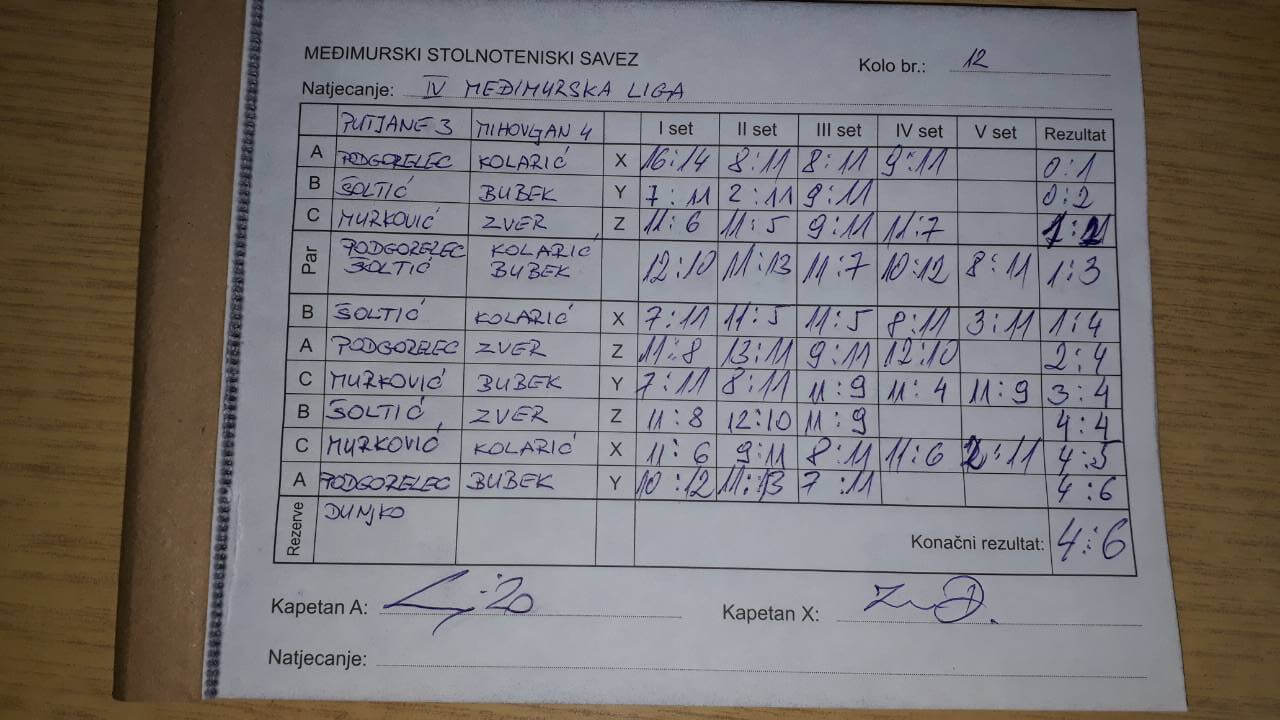 MEĐIMURSKI STOLNOTENISKI SAVEZ
Kolo br.: 12
Natjecanje: IV MEĐIMURSKA LIGA
PUTJANE 3 MIHOVLJAN 4 I set II set III set IV set V set Rezultat
A PODGORELEC KOLARIĆ X 16:14 8:11 8:11 9:11 0:1
B ŠOLTIĆ BUBEK Y 7:11 2:11 9:11 0:2
C MURKOVIĆ ZVER Z 11:6 11:5 9:11 11:7 1:2
Par PODGORELEC KOLARIĆ
ŠOLTIĆ BUBEK 12:10 11:13 11:7 10:12 8:11 1:3
B ŠOLTIĆ KOLARIĆ X 7:11 11:5 11:5 8:11 3:11 1:4
A PODGORELEC ZVER Z 11:8 13:11 9:11 12:10 2:4
C MURKOVIĆ BUBEK Y 7:11 8:11 11:9 11:4 11:9 3:4
B ŠOLTIĆ ZVER Z 11:8 12:10 11:9 4:4
C MURKOVIĆ KOLARIĆ X 11:6 9:11 8:11 11:6 2:11 4:5
A PODGORELEC BUBEK Y 10:12 11:13 7:11 4:6
Rezerve DUNJKO
Konačni rezultat: 4:6
Kapetan A:
Kapetan X:
Natjecanje: